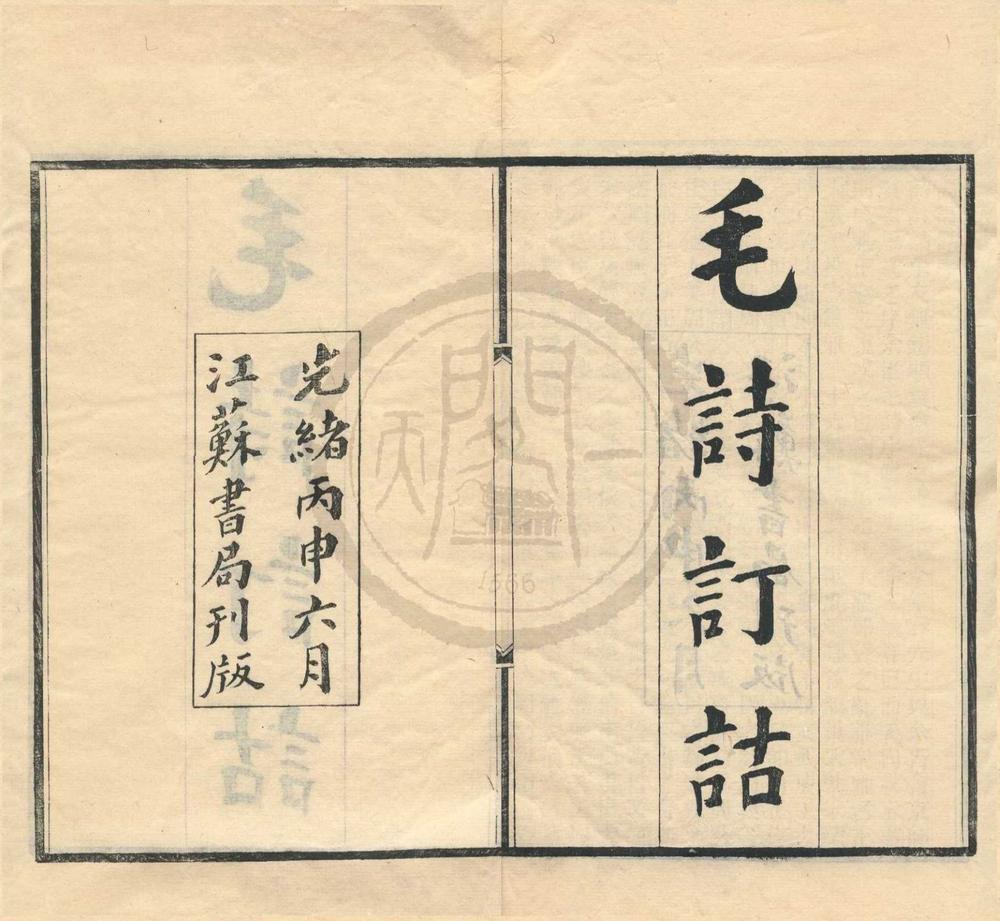 毛詩訂詁
光緒丙申六月
江蘇書局刊版
天一閣
1566